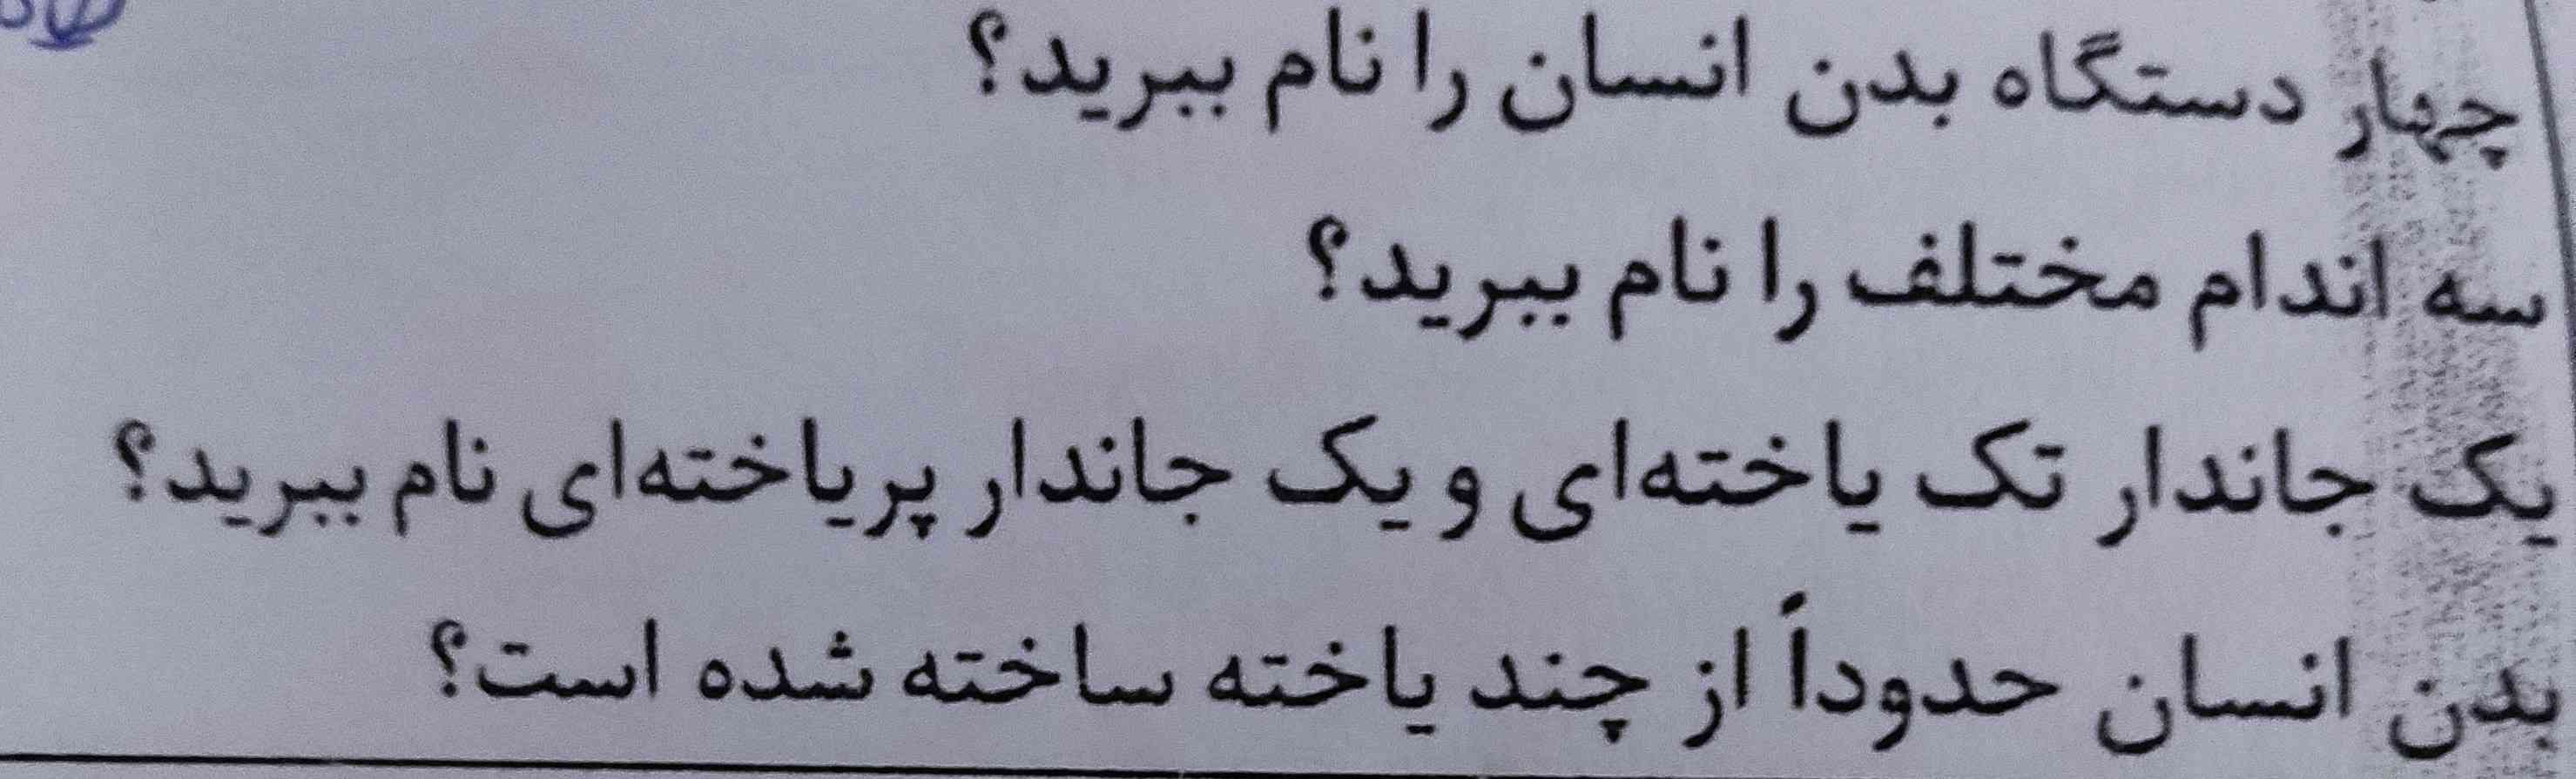 چهار دستگاه بدن انسان را نام ببرید؟
سه اندام مختلف را نام ببرید؟
یک جاندار تک یاخته‌ای و یک جاندار پریاخته‌ای نام ببرید؟
بدن انسان حدوداً از چند یاخته ساخته شده است؟